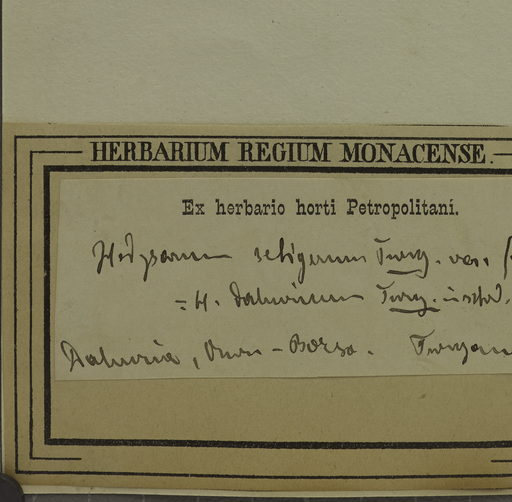 HERBARIUM REGIUM MONACENSE.
Ex herbario horti Petropolitani.
Hedysarum setigerum Turcz. var.
= H. dahuricum Turcz. in sched.
Dahuria, Onon-Borsa. Turczan